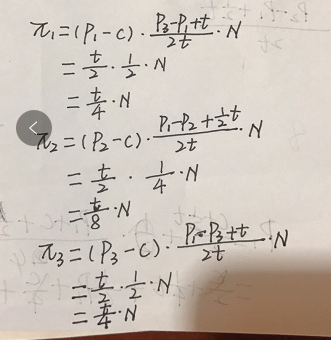 π₁=(P₁-c)·(P₃-P₁+t)/2t·N
=t/2·1/2·N
=t/4·N
π₂=(P₂-c)·(P₁-P₂+½t)/2t·N
=t/2·1/4·N
=t/8·N
π₃=(P₃-c)·(P₁-P₃+t)/2t·N
=t/2·1/2·N
=t/4·N